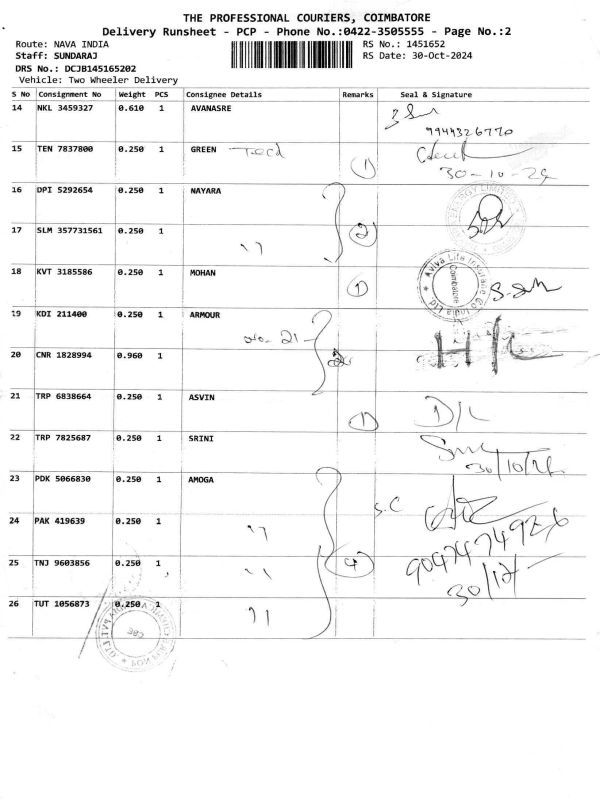 THE PROFESSIONAL COURIERS, COIMBATORE
Delivery Runsheet - PCP - Phone No.:0422-3505555 - Page No.:2
Route: NAVA INDIA RS No.: 1451652
Staff: SUNDARAJ RS Date: 30-Oct-2024
DRS No.: DCJB145165202
Vehicle: Two Wheeler Delivery
S No Consignment No Weight PCS Consignee Details Remarks Seal & Signature
14 NKL 3459327 0.610 1 AVANASRE
9944326770
15 TEN 7837800 0.250 1 GREEN Tecd 1
30-10-24
16 DPI 5292654 0.250 1 NAYARA
17 SLM 357731561 0.250 1 " 2
18 KVT 3185586 0.250 1 MOHAN 1
Aviva Life Insurance Co India Ltd
Coimbatore
19 KDI 211400 0.250 1 ARMOUR
20 CNR 1828994 0.960 1
H/L
21 TRP 6838664 0.250 1 ASVIN 1 D/L
22 TRP 7825687 0.250 1 SRINI
30/10/24
23 PDK 5066830 0.250 1 AMOGA S.C
24 PAK 419639 0.250 1 "
25 TNJ 9603856 0.250 1 " 4
26 TUT 1056873 0.250 1 "
CBE